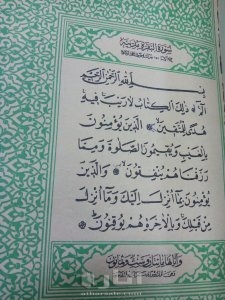 سورة البقرة مدنية
بسم الله الرحمن الرحيم
الٓمٓ ذَٰلِكَ الْكِتَابُ لَا رَيْبَ فِيهِ
هُدًى لِّلْمُتَّقِينَ الَّذِينَ يُؤْمِنُونَ
بِالْغَيْبِ وَيُقِيمُونَ الصَّلَوٰةَ وَمِمَّا
رَزَقْنَاهُمْ يُنْفِقُونَ وَالَّذِينَ
يُؤْمِنُونَ بِمَا أُنْزِلَ إِلَيْكَ وَمَا أُنْزِلَ
مِنْ قَبْلِكَ وَبِالْآخِرَةِ هُمْ يُوقِنُونَ